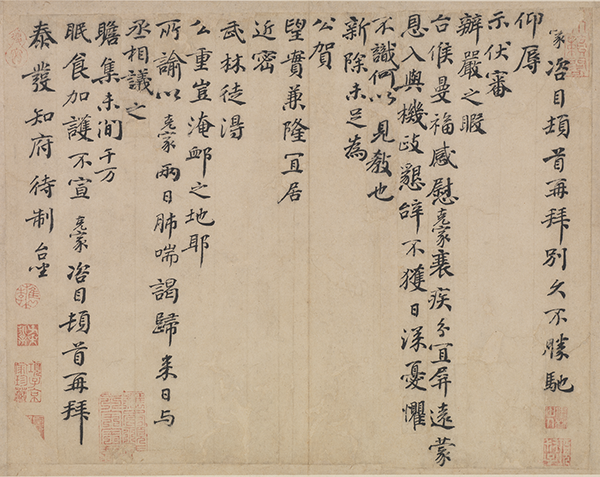 家咨目頓首再拜別久不勝馳
仰辱
示伏審
辦嚴之暇
台候曼福感慰克家衰疾分宜屏遠蒙
恩入與機政懇辭不獲日深憂懼
不識何以見教也
新除未足為
公賀
望實兼隆宜居
近密
武林徒得
公重豈淹卹之地耶
所諭以克家兩日肺喘謁歸來日與
丞相議之
瞻集未間千万
眠食加護不宣克家咨目頓首再拜
泰發知府待制台坐